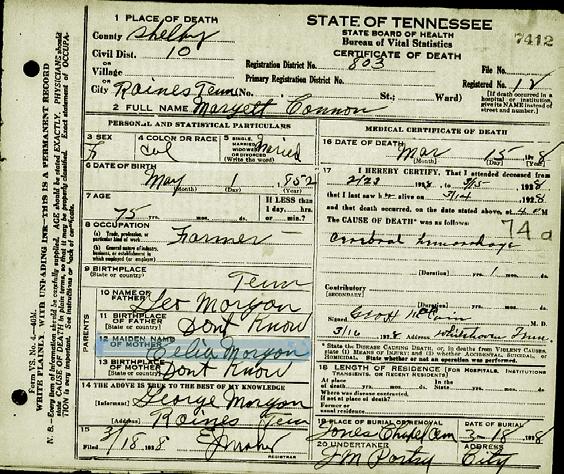 1 PLACE OF DEATH
County Shelby
Civil Dist. 10
or
Village
or
City Raines Tenn (No. St.; Ward)
2 FULL NAME Maryett Connon
STATE OF TENNESSEE
STATE BOARD OF HEALTH
Bureau of Vital Statistics
CERTIFICATE OF DEATH
7412
Registration District No. 803
File No.
Primary Registration District No.
Registered No. 18
[If death occurred in a
hospital or institution,
give its NAME instead of
street and number.]
PERSONAL AND STATISTICAL PARTICULARS
3 SEX F
4 COLOR OR RACE Col
5 SINGLE, MARRIED, WIDOWED OR DIVORCED (Write the word) Maried
6 DATE OF BIRTH
May 1 1852
(Month) (Day) (Year)
7 AGE
75 yrs. mos. ds.
If LESS than
1 day, hrs.
or min.?
8 OCCUPATION
(a) Trade, profession, or
particular kind of work
Farmer
(b) General nature of industry,
business, or establishment in
which employed (or employer)
9 BIRTHPLACE
(State or country)
Tenn
PARENTS
10 NAME OF FATHER Geo Morgon
11 BIRTHPLACE OF FATHER (State or country) Dont Know
12 MAIDEN NAME OF MOTHER Celia Morgon
13 BIRTHPLACE OF MOTHER (State or country) Dont Know
14 THE ABOVE IS TRUE TO THE BEST OF MY KNOWLEDGE
(Informant) George Morgon
(Address) Raines Tenn
15
Filed 3/18 1928
REGISTRAR
MEDICAL CERTIFICATE OF DEATH
16 DATE OF DEATH
Mar 15 1928
(Month) (Day) (Year)
17 I HEREBY CERTIFY, That I attended deceased from
2/23 1928 to 3/15 1928
that I last saw h alive on 3/14 1928
and that death occurred, on the date stated above, at M
The CAUSE OF DEATH* was as follows:
74a
Cerebral hemorrhage
(Duration) yrs. 1 mos. ds.
Contributory
(SECONDARY)
(Duration) yrs. mos. ds.
Signed M. D.
3/16 1928 (Address) Whitehaven Tenn.
* State the DISEASE CAUSING DEATH, or, in deaths from VIOLENT CAUSES,
state (1) MEANS OF INJURY; and (2) whether ACCIDENTAL, SUICIDAL, or
HOMICIDAL. State whether or not an operation was performed.
18 LENGTH OF RESIDENCE (FOR HOSPITALS, INSTITUTIONS,
TRANSIENTS, OR RECENT RESIDENTS)
At place of death yrs. mos. ds. In the State yrs. mos. ds.
Where was disease contracted,
if not at place of death?
Former or
usual residence
19 PLACE OF BURIAL OR REMOVAL
Jones Chapel Cem
DATE OF BURIAL
3-18 1928
20 UNDERTAKER
ADDRESS
City
WRITE PLAINLY, WITH UNFADING INK—THIS IS A PERMANENT RECORD